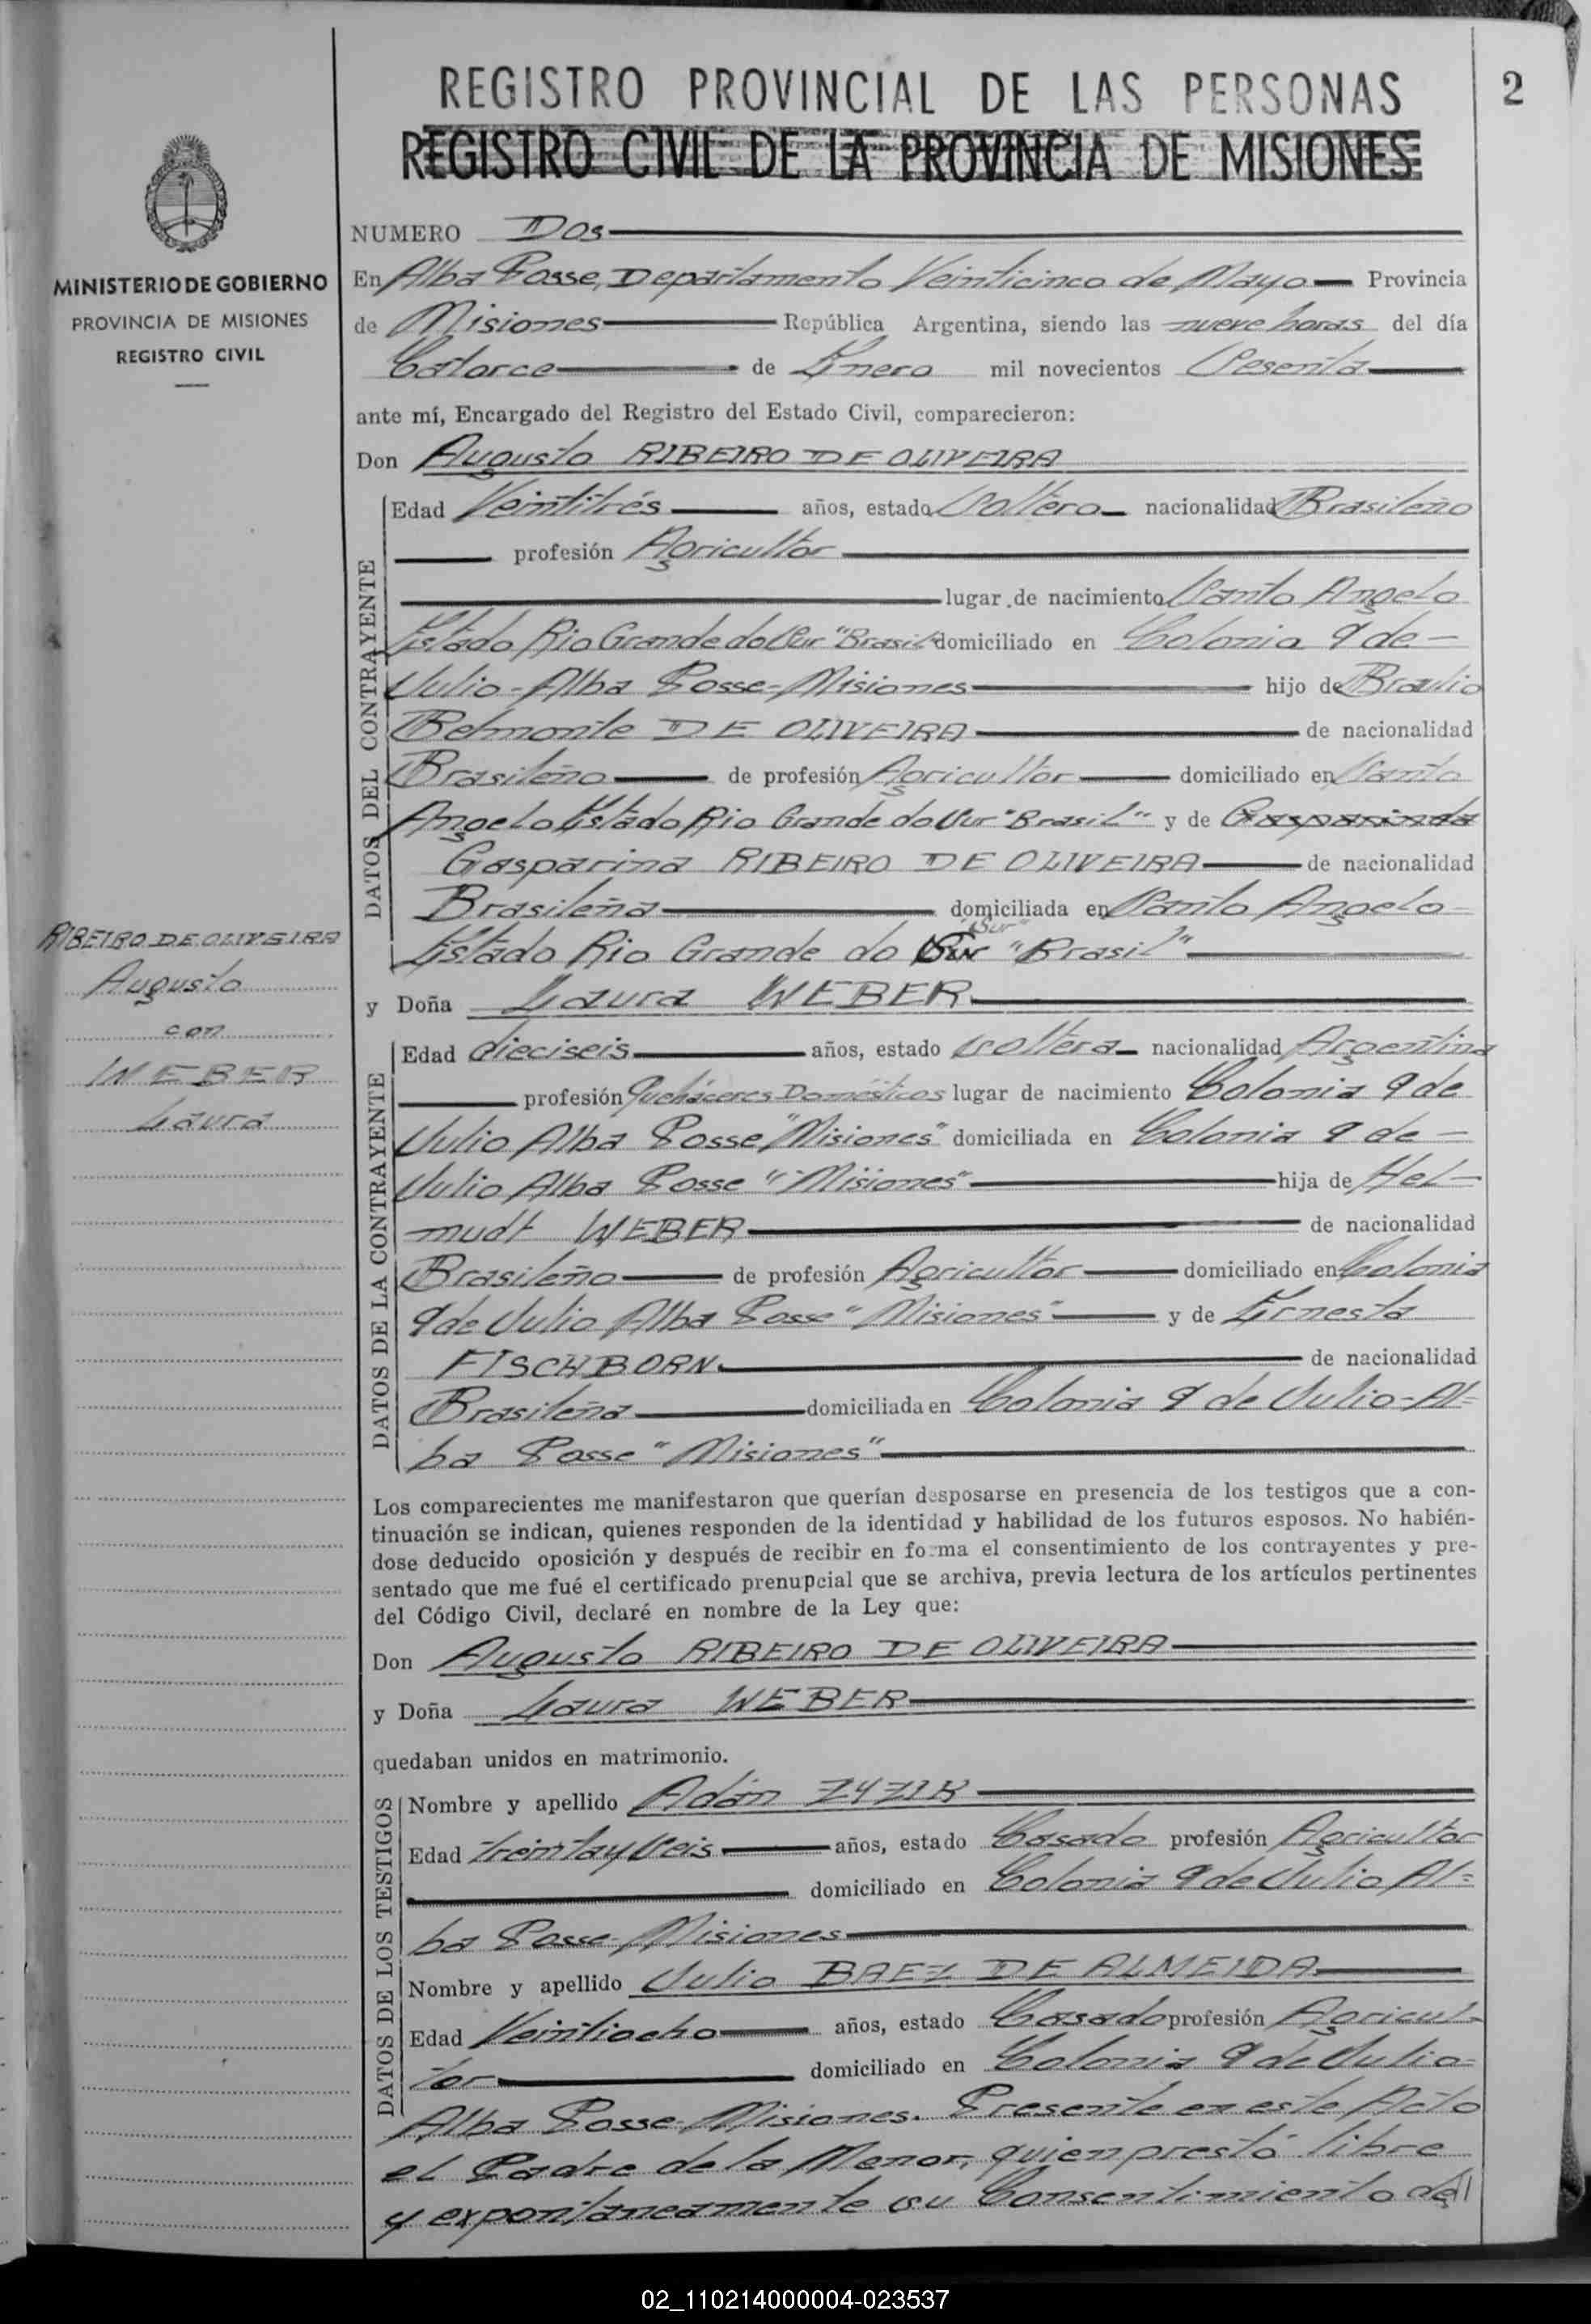 REGISTRO PROVINCIAL DE LAS PERSONAS
2
REGISTRO CIVIL DE LA PROVINCIA DE MISIONES
MINISTERIO DE GOBIERNO
PROVINCIA DE MISIONES
REGISTRO CIVIL
NUMERO Dos
En Alba Posse, Departamento Veinticinco de Mayo Provincia
de Misiones República Argentina, siendo las nueve horas del día
Catorce de Enero mil novecientos Sesenta
ante mí, Encargado del Registro del Estado Civil, comparecieron:
Don Augusto RIBEIRO DE OLIVEIRA
DATOS DEL CONTRAYENTE
Edad Veintitrés años, estado Soltero nacionalidad Brasileño
profesión Agricultor
lugar de nacimiento Santo Angelo
Estado Rio Grande do Sur "Brasil" domiciliado en Colonia 9 de
Julio-Alba Posse-Misiones hijo de Braulio
Belmonte DE OLIVEIRA de nacionalidad
Brasileño de profesión Agricultor domiciliado en Santo
Angelo Estado Rio Grande do Sur "Brasil" y de
Gasparina RIBEIRO DE OLIVEIRA de nacionalidad
Brasileña domiciliada en Santo Angelo
"Sur"
Estado Rio Grande do Sur "Brasil"
RIBEIRO DE OLIVEIRA
Augusto
con
WEBER
Laura
y Doña Laura WEBER
DATOS DE LA CONTRAYENTE
Edad dieciseis años, estado soltera nacionalidad Argentina
profesión Quehaceres Domésticos lugar de nacimiento Colonia 9 de
Julio Alba Posse "Misiones" domiciliada en Colonia 9 de
Julio Alba Posse "Misiones" hija de Hel-
mudt WEBER de nacionalidad
Brasileño de profesión Agricultor domiciliado en Colonia
9 de Julio Alba Posse "Misiones" y de Ernesta
FISCHBORN de nacionalidad
Brasileña domiciliada en Colonia 9 de Julio-Al=
ba Posse "Misiones"
Los comparecientes me manifestaron que querían desposarse en presencia de los testigos que a con-
tinuación se indican, quienes responden de la identidad y habilidad de los futuros esposos. No habién-
dose deducido oposición y después de recibir en forma el consentimiento de los contrayentes y pre-
sentado que me fué el certificado prenupcial que se archiva, previa lectura de los artículos pertinentes
del Código Civil, declaré en nombre de la Ley que:
Don Augusto RIBEIRO DE OLIVEIRA
y Doña Laura WEBER
quedaban unidos en matrimonio.
DATOS DE LOS TESTIGOS
Nombre y apellido Adán
Edad treinta y Seis años, estado Casado profesión Agricultor
domiciliado en Colonia 9 de Julio Al=
ba Posse, Misiones
Nombre y apellido Julio BAEZ DE ALMEIDA
Edad Veintiocho años, estado Casado profesión Agricul-
tor domiciliado en Colonia 9 de Julio
Alba Posse-Misiones. Presente en este Acto
el Padre de la Menor, quien prestó libre
y expontaneamente su Consentimiento del
02_110214000004-023537